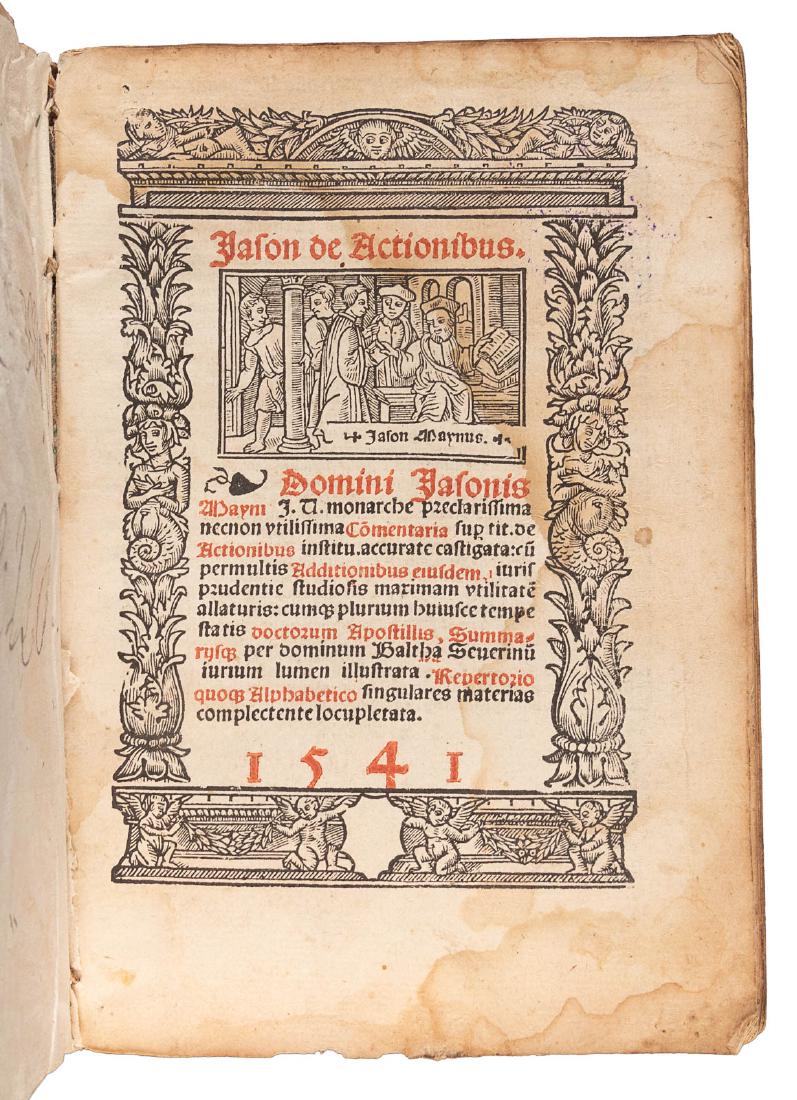 Jason de Actionibus.
Jason Maynus.
Domini Jasonis
Mayni J. U. monarche preclarissima
necnon vtilissima Cōmentaria suꝑ tit. de
Actionibus institu. accurate castigata: cū
permultis Additionibus eiusdem, iuris
prudentie studiosis maximam vtilitatē
allaturis: cumqꝫ plurium huiusce tempe
statis doctorum Apostillis, Summa-
rysqꝫ per dominum Baltha Seuerinū
iurium lumen illustrata. Repertorio
quoqꝫ Alphabetico singulares materias
complectente locupletata.
1541